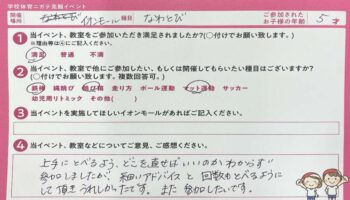 学校体育ニガテ克服イベント
開催場所 イオンモール 種目 なわとび ご参加されたお子様の年齢 5才
1 当イベント、教室をご参加いただき満足されましたか?(〇付けでお願い致します。)
※理由等は④にご記入ください。
満足 普通 不満
2 当イベント、教室で他にご参加したい、もしくは開催してもらいたい種目はございますか?
(〇付けでお願い致します。複数回答可。)
鉄棒 縄跳び 跳び箱 走り方 ボール運動 マット運動 サッカー
幼児用リトミック その他( )
3 当イベントを実施してほしいイオンモールがあればご記入ください。
4 当イベント、教室などについてご意見、ご感想ください。
上手にとべるよう、どこを直せばいいのかわからず
参加しましたが、細いアドバイスと回数もとべるように
して頂きうれしかったです。また参加したいです。